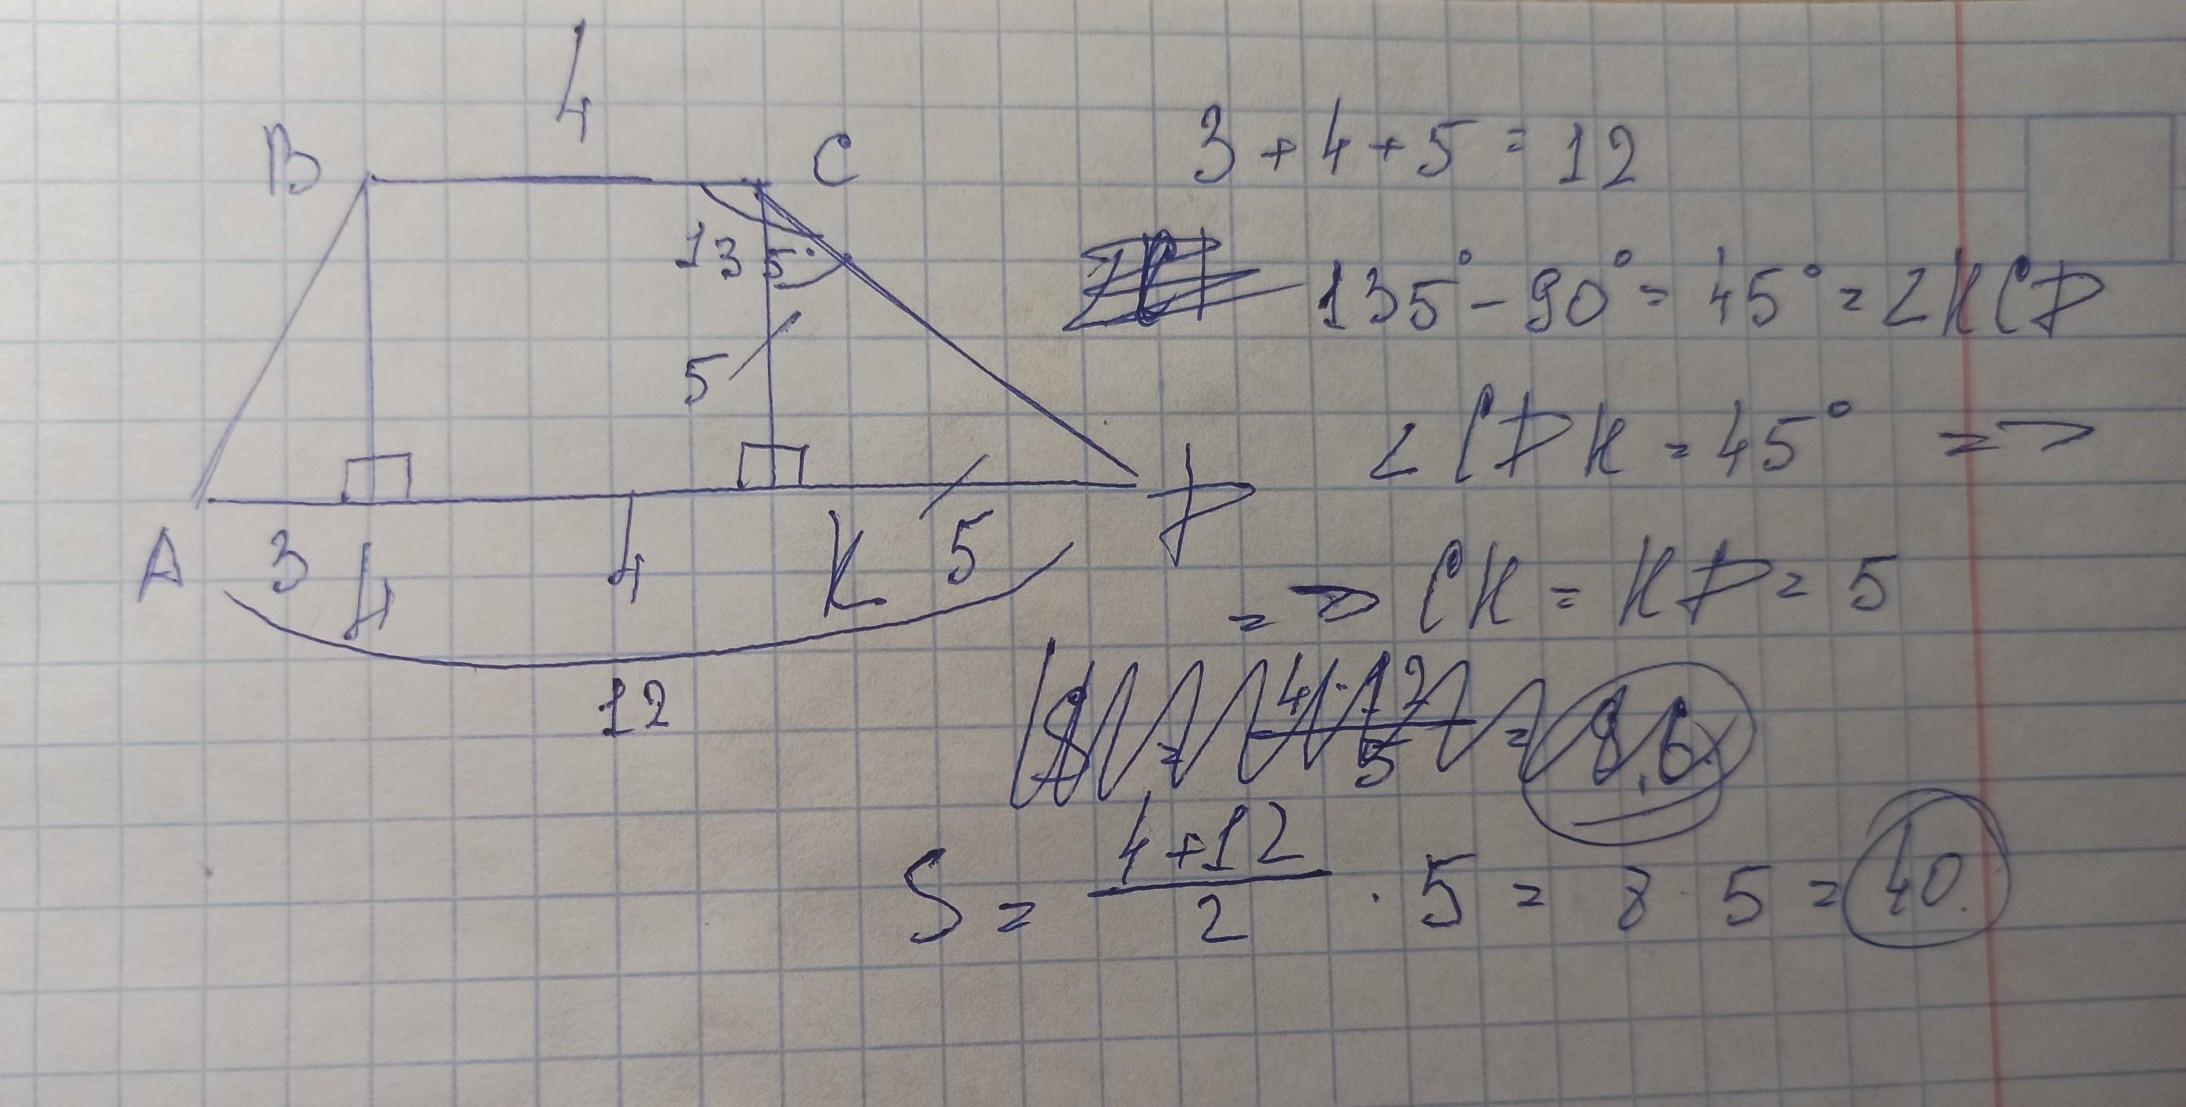 4
B
C
135°
5
A
3
H
4
K
5
D
12
3 + 4 + 5 = 12
135° - 90° = 45° = ∠KCD
∠CDK = 45° =>
=> CK = KD = 5
S = (4+12)/2 · 5 = 8 · 5 = 40.